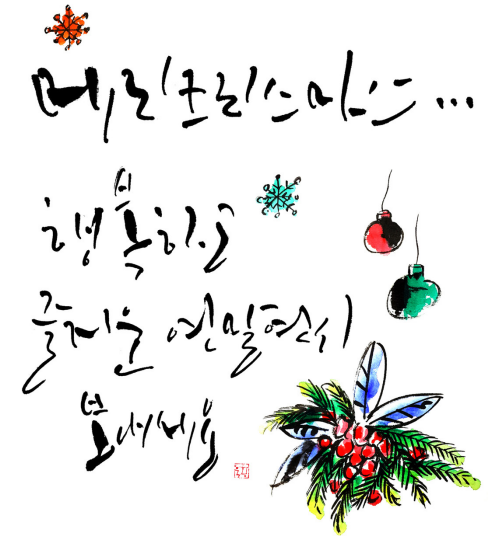 메리크리스마스...
행복하고
즐거운 연말연시
보내세요